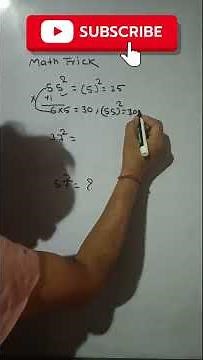 SUBSCRIBE
Math Trick
55² = (5)² = 25
+1
6×5 = 30, (55)² = 30
² =
5 ² = ?